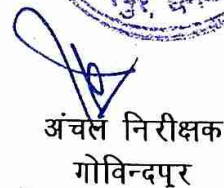 अंचल निरीक्षक
गोविन्दपुर